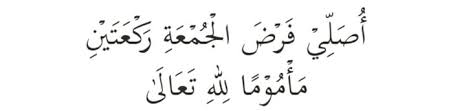 أُصَلِّيْ فَرْضَ الْجُمْعَةِ رَكْعَتَيْنِ
مَأْمُوْمًا لِلّٰهِ تَعَالَى